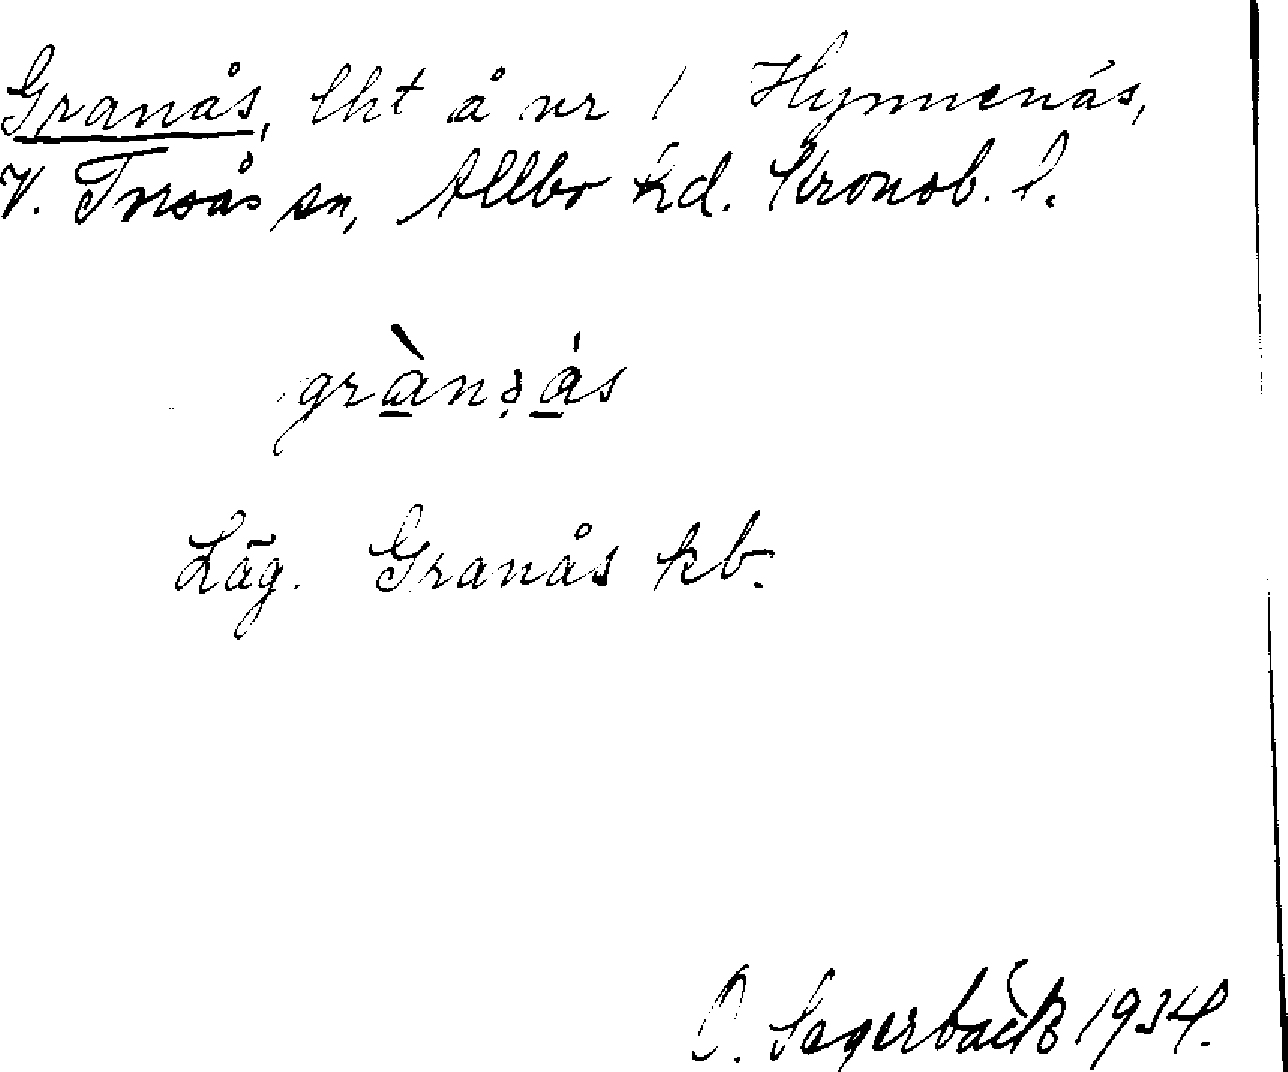 Granås, lht å nr 1 Hymmenås,
V. Torsås sn, Allbo hd. Kronob. l.
grànəás
Läg. Granås kb.
O. Sagerbäck 1934.